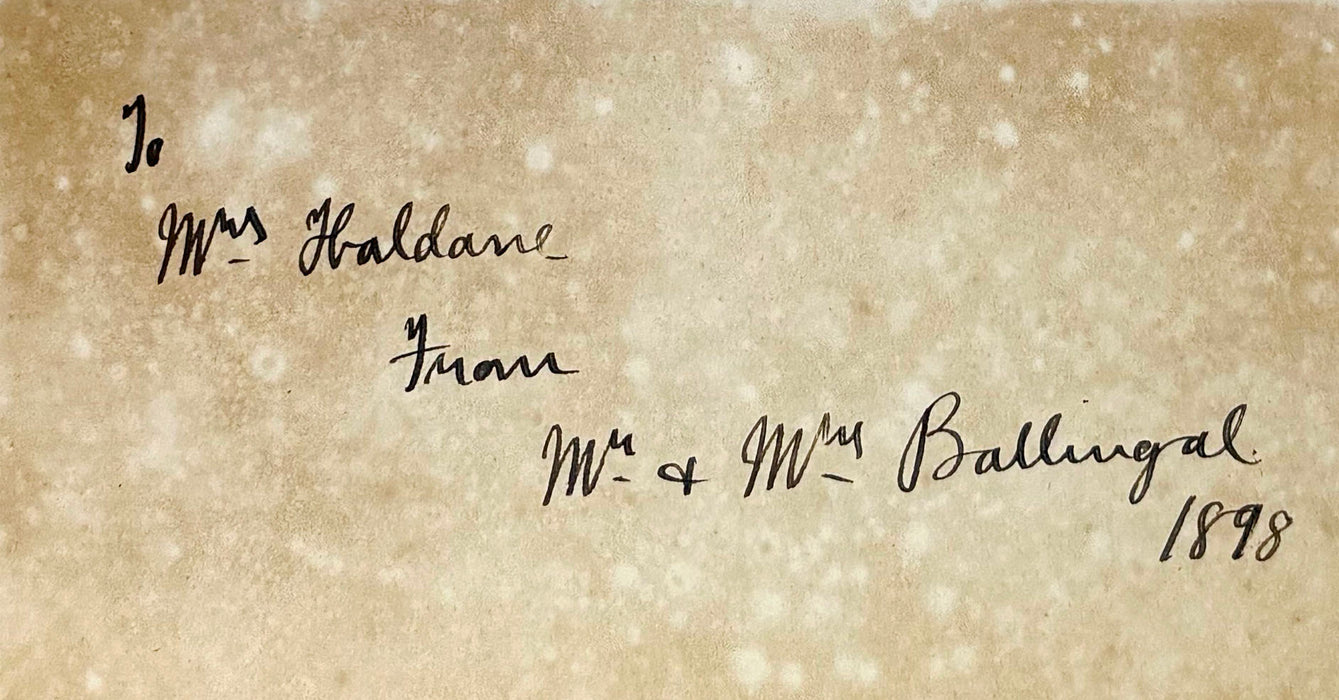 To
Mrs Haldane
From
Mr & Mrs Ballingal.
1898